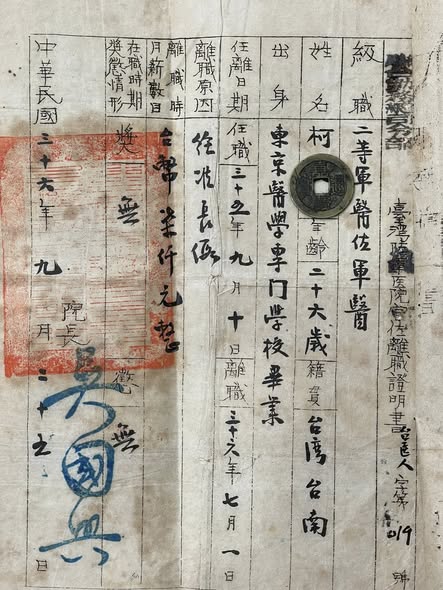 臺灣陸軍醫院官佐離職證明書 台醫人字第019號
級職 二等軍醫佐軍醫
姓名 柯 年齡 二十六歲 籍貫 台灣台南
出身 東京醫學專門學校畢業
任離日期 任職 三十五年九月十日 離職 三十六年七月一日
離職原因 徐准長假
離職時月薪數目 台幣柒仟元整
在職時期獎懲情形 獎 無 懲 無
中華民國三十六年九月二十五日
院長 吳國興